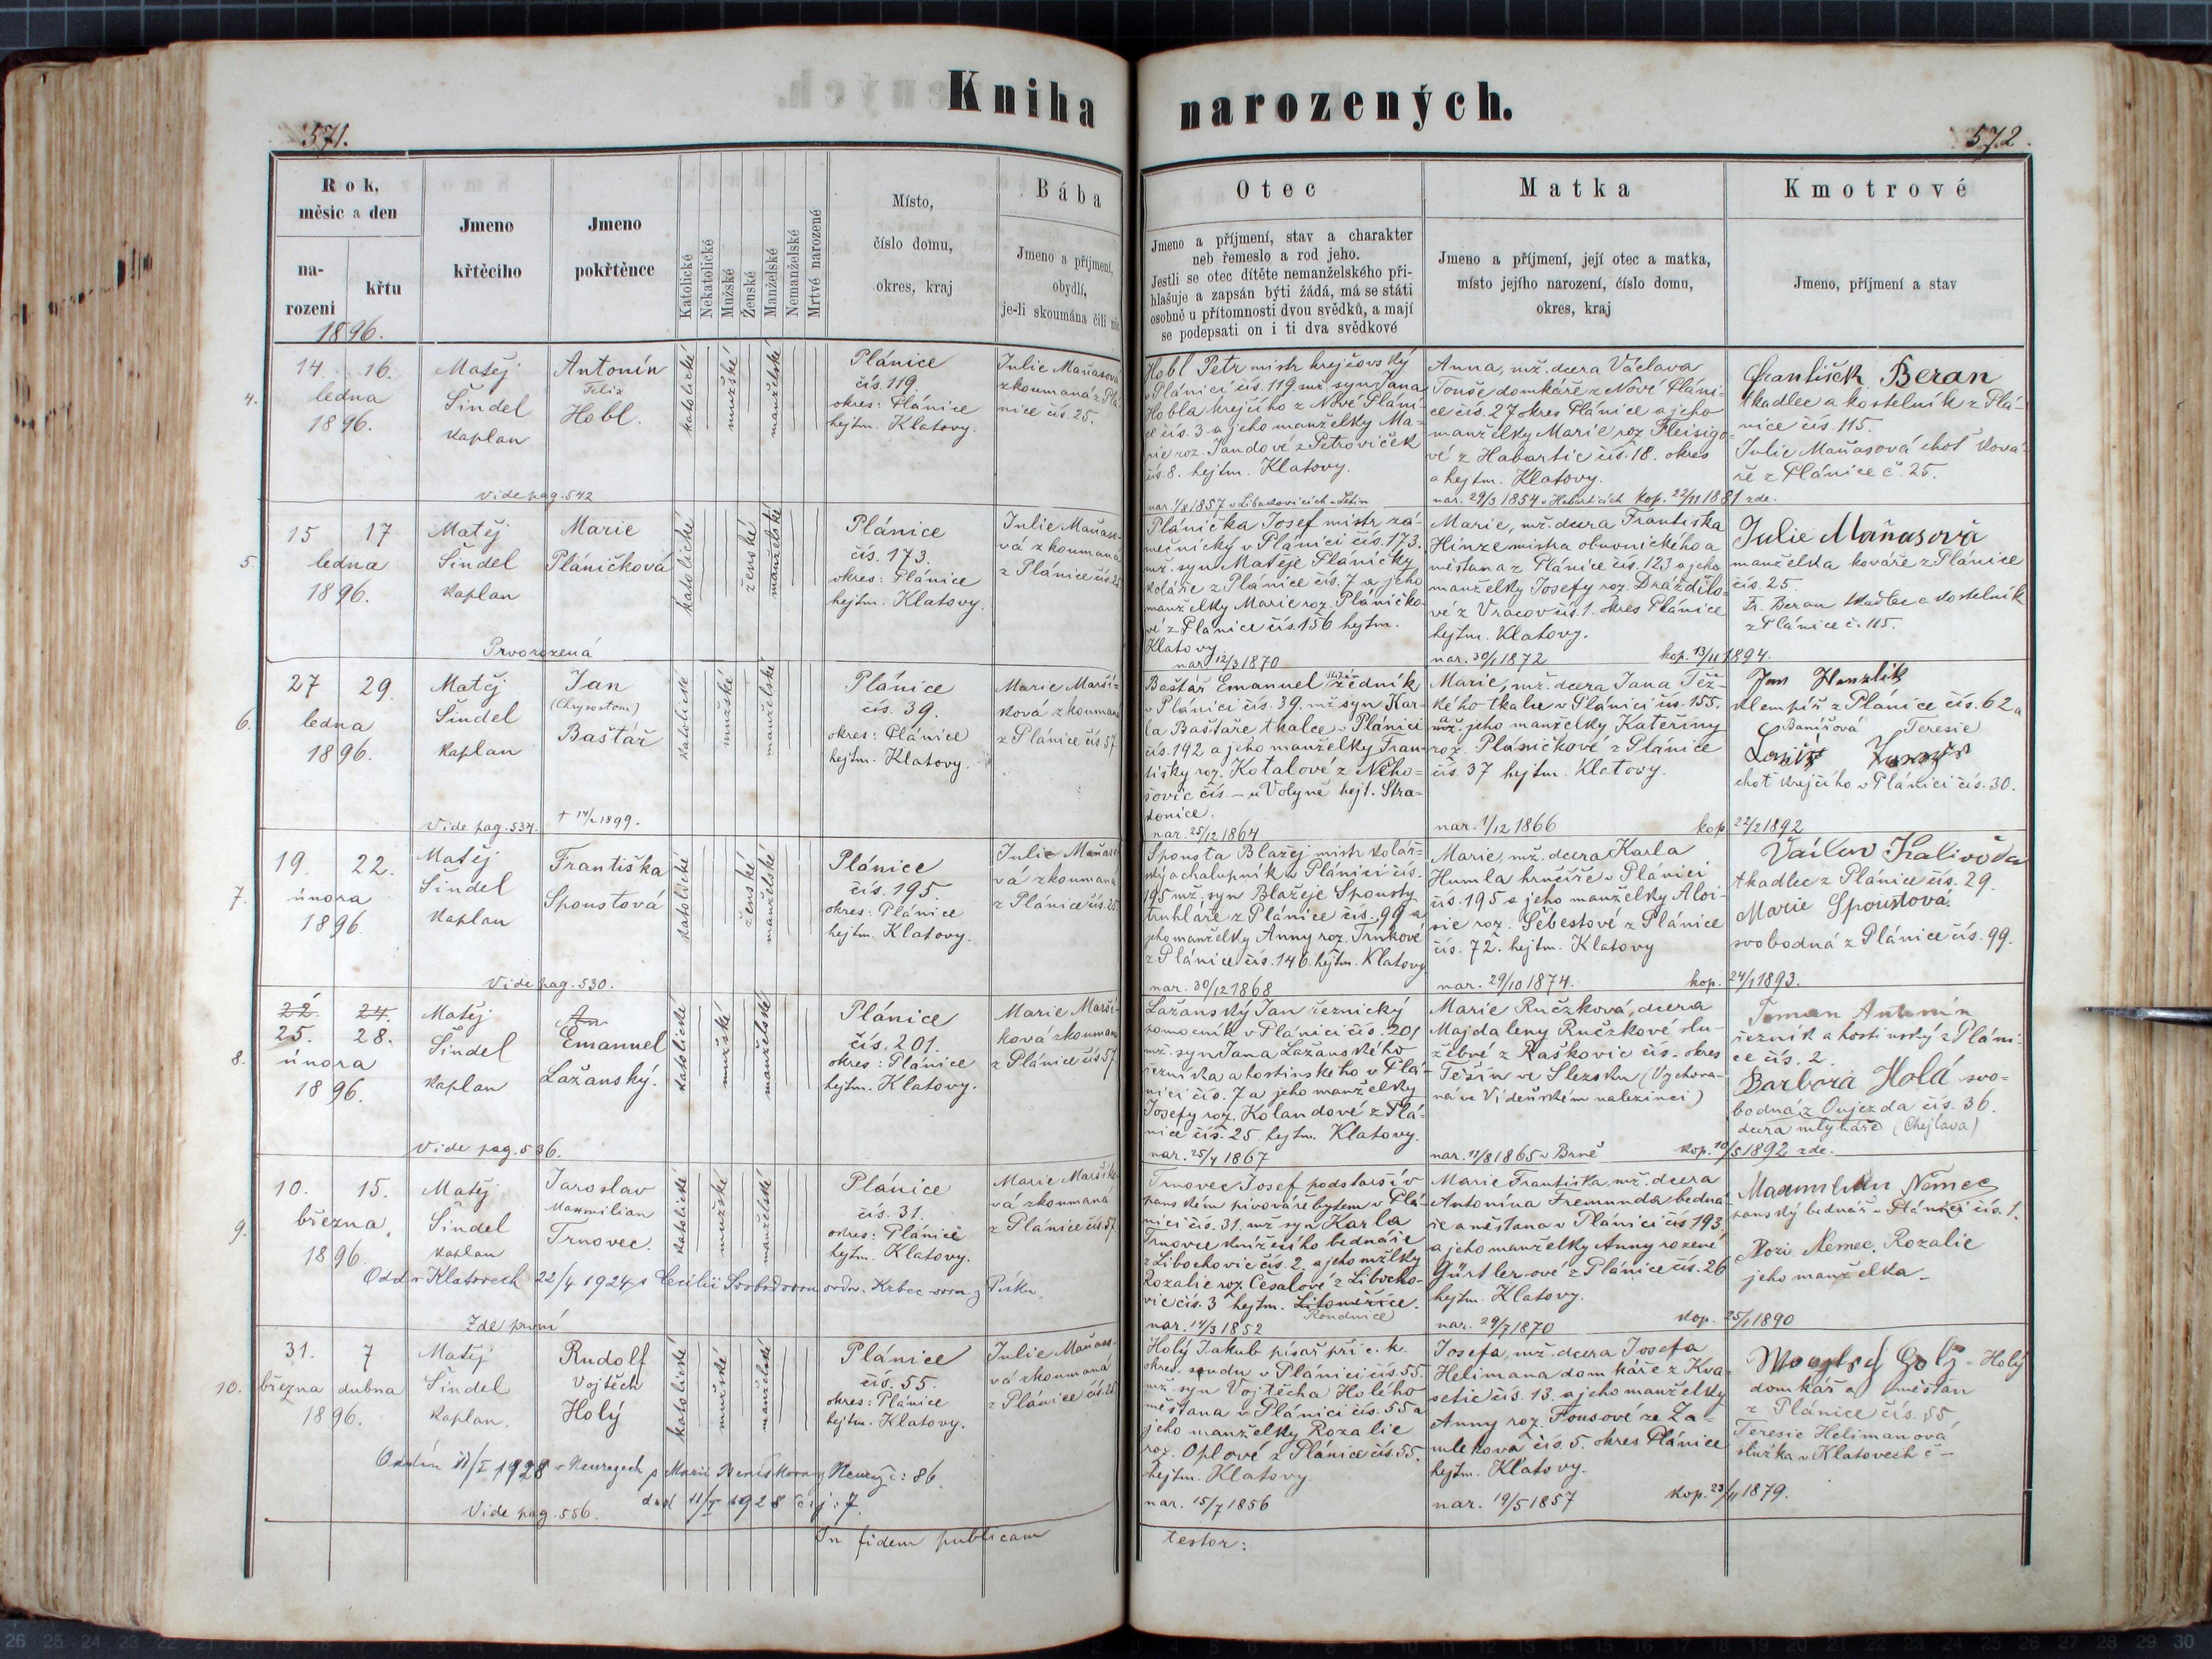 Kniha narozených.
571.
572
Rok,
měsíc a den
na-
rození
křtu
1896.
Jmeno
křtěcího
Jmeno
pokřtěnce
Katolické
Nekatolické
Mužské
Ženské
Manželské
Nemanželské
Mrtvé narozené
Místo,
číslo domu,
okres, kraj
Bába
Jmeno a příjmení,
obydlí,
je-li skoumána čili nic
Otec
Jmeno a příjmení, stav a charakter
neb řemeslo a rod jeho.
Jestli se otec dítěte nemanželského při-
hlašuje a zapsán býti žádá, má se státi
osobně u přítomnosti dvou svědků, a mají
se podepsati on i ti dva svědkové
Matka
Jmeno a příjmení, její otec a matka,
místo jejího narození, číslo domu,
okres, kraj
Kmotrové
Jmeno, příjmení a stav
4.
14. 16.
ledna
1896.
Matěj
Šindel
kaplan
vide pag. 542
Antonín
Felix
Hobl.
katolické
mužské
manželské
Plánice
čís. 119.
okres: Plánice
hejtm. Klatovy.
Julie Maňasová
zkoumaná z Plá-
nice čís. 25.
Hobl Petr mistr krejčovský
v Plánici čís. 119. mž. syn Jana
Hobla krejčího z Nové Pláni-
ce čís. 3 a jeho manželky Ma-
rie roz. Jandové z Petroviček
čís. 8. hejtm. Klatovy.
nar. 1/8 1857 v Libákovicích u Letin
Anna, mž. dcera Václava
Touše domkáře z Nové Pláni-
ce čís. 27 okres Plánice a jeho
manželky Marie roz. Fleisigo-
vé z Habartic čís. 18. okres
a hejtm. Klatovy.
nar. 29/3 1854 v Habarticích kop. 22/11 1881 zde.
František Beran
tkadlec a kostelník z Plá-
nice čís. 115.
Julie Maňasová choť ková-
ře z Plánice č. 25.
5.
15 17
ledna
1896.
Matěj
Šindel
kaplan
Prvorozená
Marie
Pláničková
katolické
ženské
manželské
Plánice
čís. 173.
okres: Plánice
hejtm. Klatovy.
Julie Maňaso-
vá zkoumaná
z Plánice čís. 25
Plánička Josef mistr zá-
mečnický v Plánici čís. 173.
mž. syn Matěje Pláničky
koláře z Plánice čís. 7 a jeho
manželky Marie roz. Pláničko-
vé z Plánice čís. 156 hejtm.
Klatovy
nar. 12/3 1870
Marie, mž. dcera Františka
Hinze mistra obuvnického a
měšťana z Plánice čís. 123 a jeho
manželky Josefy roz. Dráždilo-
vé z Vracov čís. 1. okres Plánice
hejtm. Klatovy.
nar. 30/1 1872 kop. 13/11 1894.
Julie Maňasová
manželka kováře z Plánice
čís. 25
Fr. Beran tkadlec a kostelník
z Plánice č. 115.
6.
27 29.
ledna
1896.
Matěj
Šindel
kaplan
Vide pag. 534.
Jan
(Chrysostom)
Baštář
katolické
mužské
manželské
Plánice
čís. 39.
okres: Plánice
hejtm. Klatovy.
Marie Marší-
ková zkoumaná
z Plánice čís 57.
Baštář Emanuel zedník
v Plánici čís. 39. mž syn Kar-
la Baštáře tkalce v Plánici
čís. 192 a jeho manželky Fran-
tišky roz. Kotalové z Něho-
šovic čís. – u Volyně hejt. Stra-
konice.
nar. 25/12 1864
Marie, mž. dcera Jana Těž-
kého tkalce v Plánici čís. 155.
a jeho manželky Kateřiny
roz. Pláničkové z Plánice
čís. 37 hejtm. Klatovy.
nar. 1/12 1866 kop 22/2 1892
Jan Hanzlík
klempíř z Plánice čís. 62 a
Teresie
choť krejčího v Plánici čís. 30.
7.
19. 22.
února
1896
Matěj
Šindel
kaplan
Vide pag. 530.
Františka
Spoustová
katolické
ženské
manželské
Plánice
čís. 195.
okres: Plánice
hejtm. Klatovy.
Julie Maňaso-
vá zkoumaná
z Plánice čís. 25
Spousta Blažej mistr kolář-
ský a chalupník v Plánici čís.
195 mž. syn Blažeje Spousty
truhláře z Plánice čís. 99 a
jeho manželky Anny roz. Trnkové
z Plánice čís. 146. hejtm. Klatovy
nar. 30/12 1868
Marie, mž. dcera Karla
Humla hrnčíře v Plánici
čís. 195 a jeho manželky Aloi-
sie roz. Šebestové z Plánice
čís. 72. hejtm. Klatovy
nar. 29/10 1874. kop. 24/1 1893.
Václav Kalivoda
tkadlec z Plánice čís. 29.
Marie Spoustová.
svobodná z Plánice čís. 99.
8.
22. 24.
25. 28.
února
1896.
Matěj
Šindel
kaplan
Vide pag. 536.
Emanuel
Lažanský.
katolické
mužské
manželské
Plánice
čís. 201.
okres: Plánice
hejtm. Klatovy.
Marie Marší-
ková zkouman
z Plánice čís 57.
Lažanský Jan řeznický
pomocník v Plánici čís. 201
mž. syn Jana Lažanského
řezníka a hostinského v Plá-
nici čís. 7 a jeho manželky
Josefy roz. Kolandové z Plá-
nice čís. 25 hejtm. Klatovy.
nar. 25/4 1867
Marie Ručzková, dcera
Majdaleny Ručzkové slu-
žebné z Raškovic čís. – okres
Těšín ve Slezsku (Vychova-
ná ve Vídeňském nalezinci)
nar. 12/8 1865 v Brně kop. 10/5 1892 zde.
Toman Antonín
řezník a hostinský z Pláni-
ce čís. 2.
Barbora Holá svo-
bodná z Oujezda čís. 36.
dcera mlynáře (Chejlava)
9.
10. 15.
března
1896.
Matěj
Šindel
kaplan
Jaroslav
Maxmilian
Trnovec.
katolické
mužské
manželské
Plánice
čís. 31.
okres: Plánice
hejtm. Klatovy.
Marie Maršíko-
vá zkoumaná
z Plánice čís 57
Odd. v Klatovech 22/4 1924 s Cecilií Svobodovou z Písku.
Zde první
Trnovec Josef podstarší v
panském pivováře bytem v Plá-
nici čís. 31. mž syn Karla
Trnovce knížecího bednáře
z Libochovic čís. 2. a jeho mžlky
Rozalie roz. Česalové z Libocho-
vic čís. 3 hejtm. Litoměřice.
Roudnice
nar. 14/3 1852
Marie Františka, mž. dcera
Antonína Fremunda bedná-
ře a měšťana v Plánici čís 193
a jeho manželky Anny rozené
Gürtlerové z Plánice čís. 26
hejtm. Klatovy.
nar. 29/7 1870 kop. 25/1 1890
Maxmilian Němec
panský bednář v Plánici čís. 1.
Rozi. Nemec. Rozalie
jeho manželka.
10.
31. 7
března dubna
1896.
Matěj
Šindel
kaplan.
Rudolf
Vojtěch
Holý
katolické
mužské
manželské
Plánice
čís. 55.
okres: Plánice
hejtm. Klatovy.
Julie Maňaso-
vá zkoumaná
z Plánice čís. 25
1928 v Neurazech s Marií z Neuraz č: 86.
1928 čj: 7.
Vide pag. 556.
Holý Jakub písař při c. k.
okres. soudu v Plánici čís. 55.
mž. syn Vojtěcha Holého
měšťana v Plánici čís. 55 a
jeho manželky Rozalie
roz. Oplové z Plánice čís. 55.
hejtm. Klatovy.
nar. 15/7 1856
Josefa, mž. dcera Josefa
Helimana domkáře z Kva-
setic čís. 13. a jeho manželky
Anny roz. Fousové ze Za-
mlekova čís. 5. okres Plánice
hejtm. Klatovy.
nar. 19/5 1857 kop. 23/11 1879.
Holý
domkář a měšťan
z Plánice čís. 55
Teresie Helimanová
služka v Klatovech č –
In fidem publicam testor: